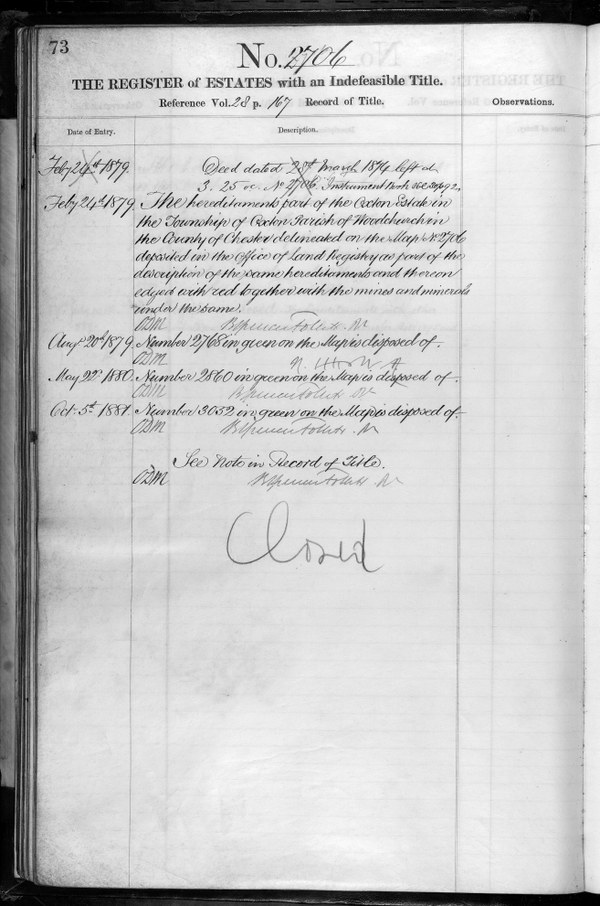 73
No. 2706
THE REGISTER of ESTATES with an Indefeasible Title.
Reference Vol. 28 p. 167 Record of Title.
Observations.
Date of Entry.
Description.
Feby 24th 1879.
Deed dated 28th March 1874 left at
3. 25 No 2706. Instrument Book
Feby 24th 1879.
The hereditaments part of the Oxton Estate in
the Township of Oxton Parish of Woodchurch in
the County of Chester delineated on the Map No 2706
deposited in the Office of Land Registry as part of the
description of the same hereditaments and thereon
edged with red together with the mines and minerals
under the same.
ODM
Augt 20th 1879.
Number 2768 in green on the Map is disposed of.
ODM
May 22d 1880.
Number 2860 in green on the Map is disposed of.
ODM
Oct. 5th 1881.
Number 3052 in green on the Map is disposed of.
ODM
See Note in Record of Title.
ODM
Closed